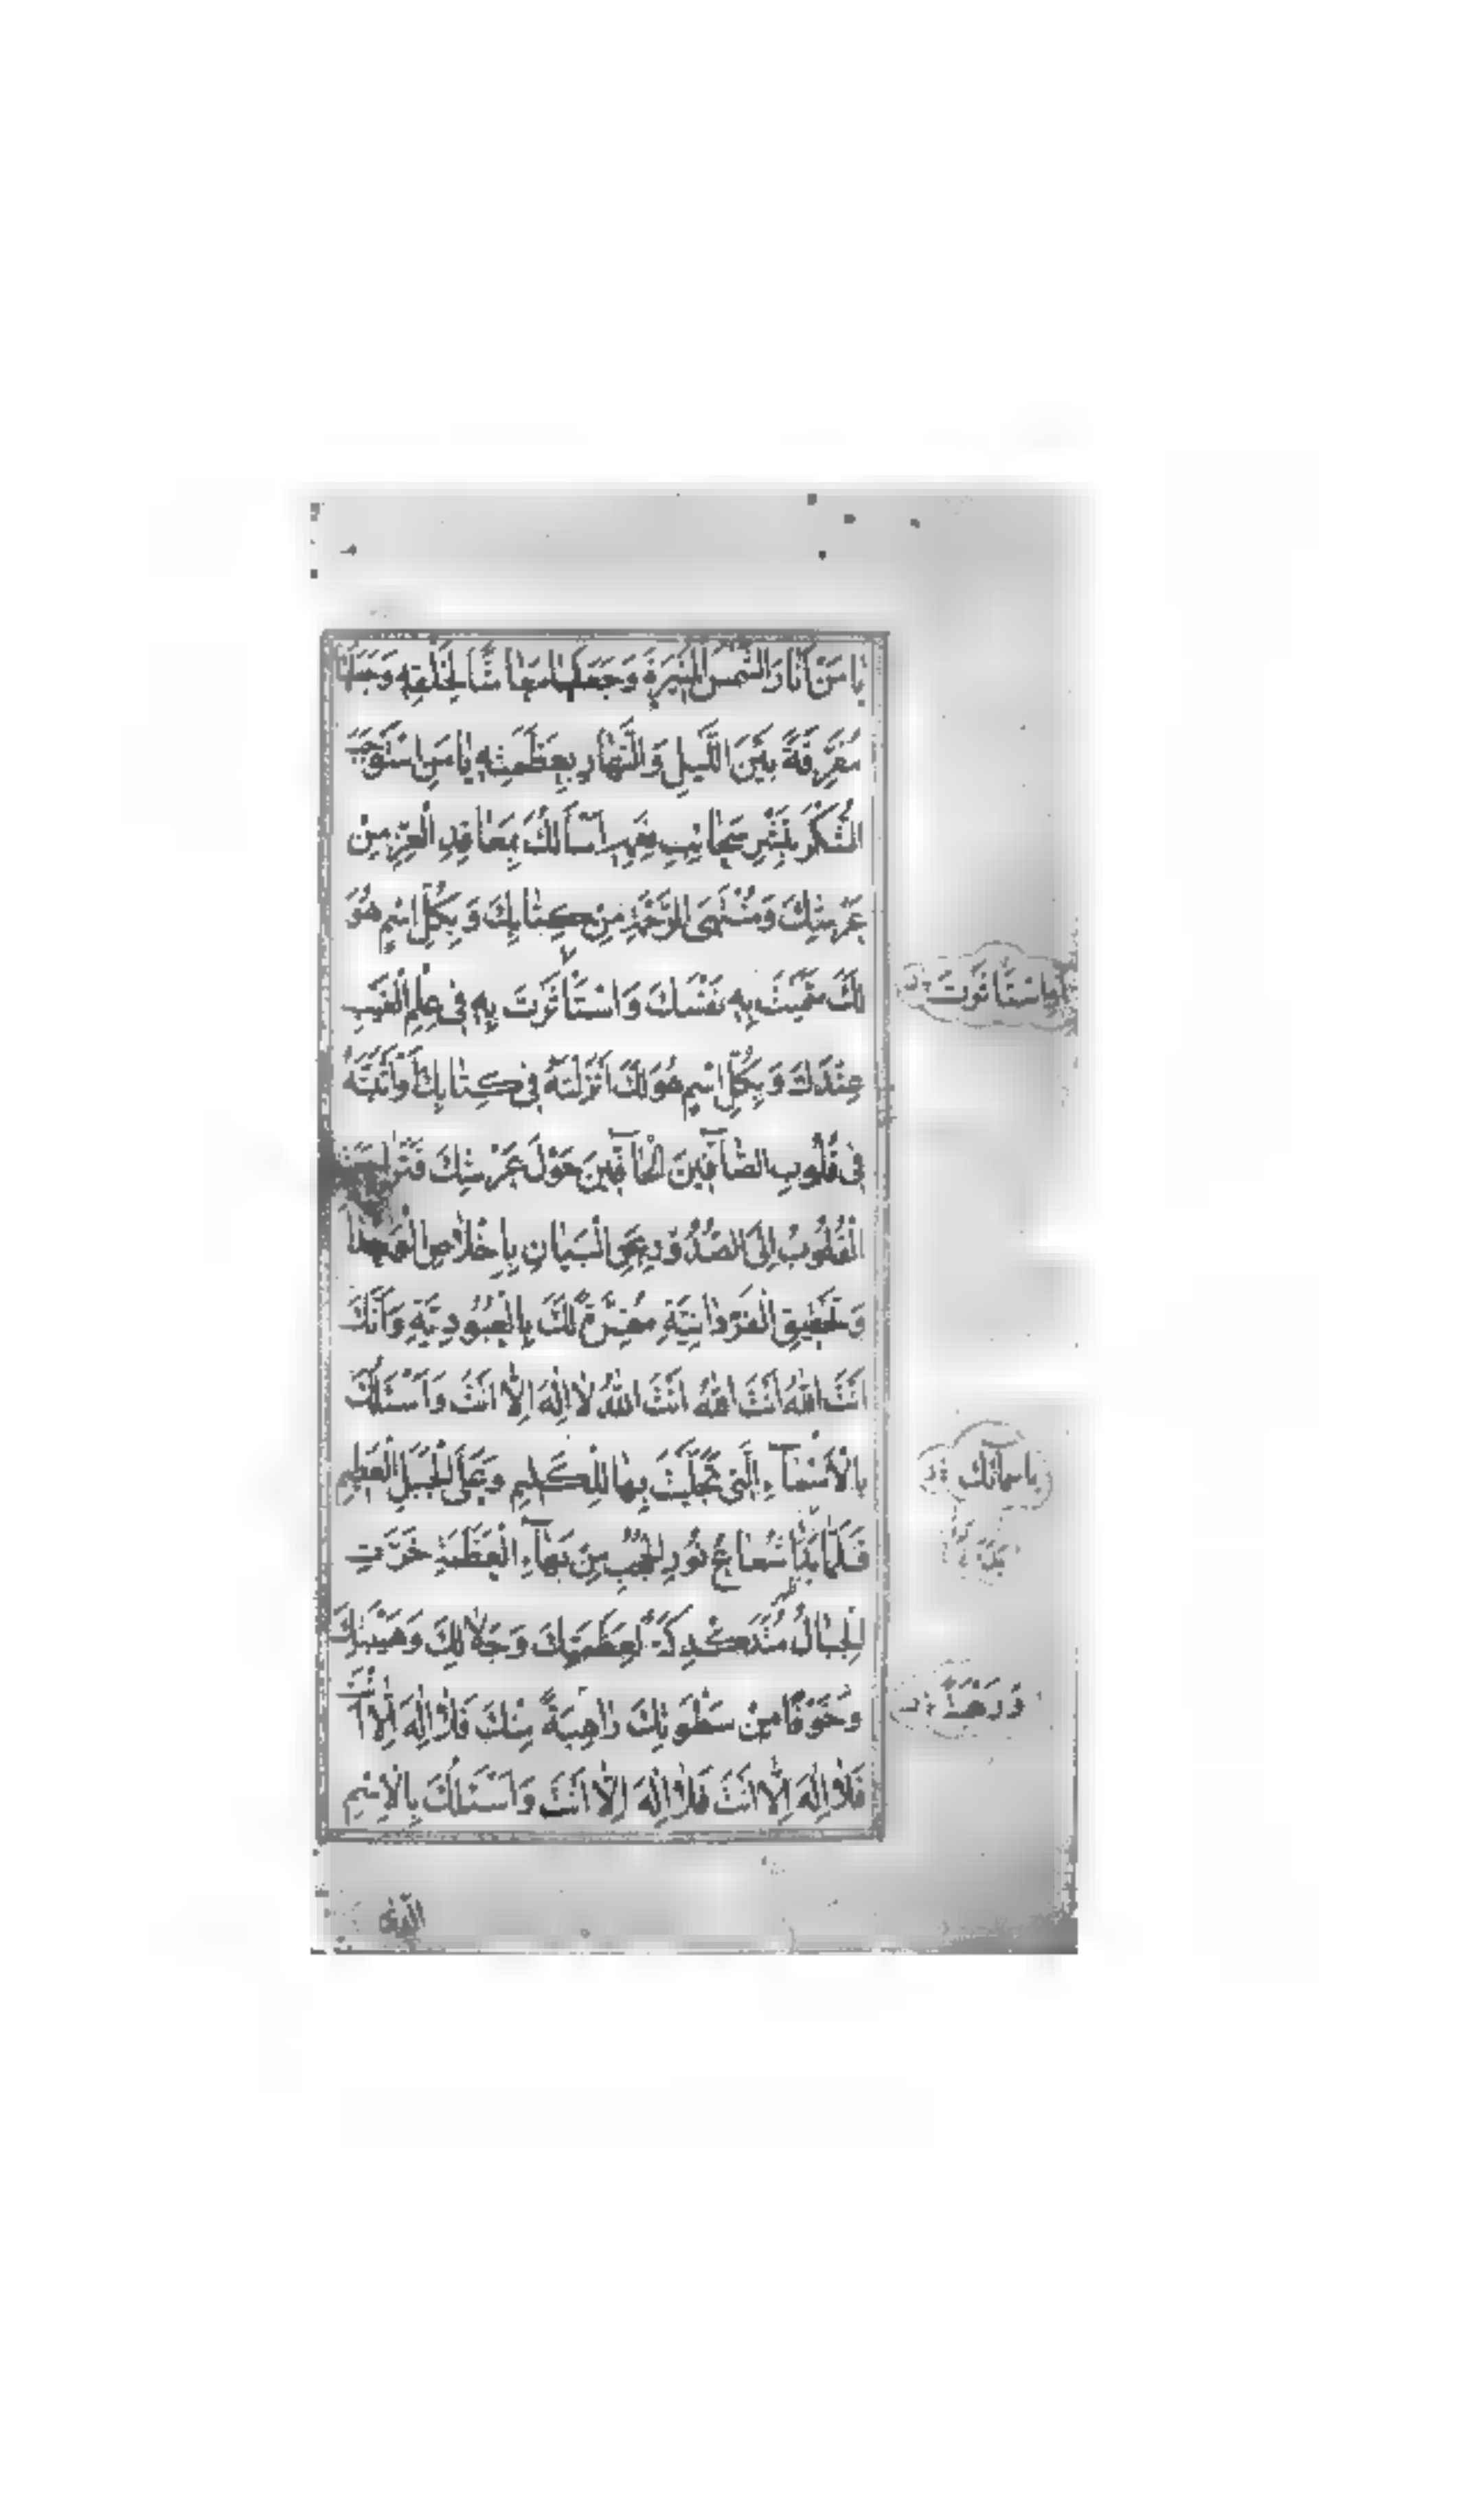 يَا مَنْ أَنَارَ الشَّمْسَ الْمُنِيرَةَ وَجَعَلَهَا مَعَاشًا لِخَلْقِهِ وَجَعَلَهَا
مُفَرِّقَةً بَيْنَ اللَّيْلِ وَالنَّهَارِ بِعَظَمَتِهِ يَا مَنِ اسْتَوْجَبَ
الشُّكْرَ بِنَشْرِ سَحَائِبِ نِعَمِهِ اَسْأَلُكَ بِمَعَاقِدِ الْعِزِّ مِنْ
عَرْشِكَ وَمُنْتَهَى الرَّحْمَةِ مِنْ كِتَابِكَ وَبِكُلِّ اسْمٍ هُوَ
لَكَ سَمَّيْتَ بِهِ نَفْسَكَ وَاسْتَأْثَرْتَ بِهِ فِى عِلْمِ الْغَيْبِ
عِنْدَكَ وَبِكُلِّ اسْمٍ هُوَ لَكَ اَنْزَلْتَهُ فِى كِتَابِكَ اَوْ اَثْبَتَّهُ
فِى قُلُوبِ الصَّآفِّينَ الْحَآفِّينَ حَوْلَ عَرْشِكَ فَتَرَاجَعَتِ
الْقُلُوبُ اِلَى الصُّدُورِ عَنِ الْبَيَانِ بِاِخْلَاصِ الْوَحْدَانِيَّةِ
وَتَحْقِيقِ الْفَرْدَانِيَّةِ مُقِرَّةً لَكَ بِالْعُبُودِيَّةِ وَاَنَّكَ
اَنْتَ اللّٰهُ اَنْتَ اللّٰهُ اَنْتَ اللّٰهُ لَا اِلٰهَ اِلَّا اَنْتَ وَاَسْئَلُكَ
بِالْاَسْمَآءِ الَّتِى تَجَلَّيْتَ بِهَا لِلْكَلِيمِ عَلَى الْجَبَلِ الْعَظِيمِ
فَلَمَّا بَدَا شُعَاعُ نُورِ الْحُجُبِ مِنْ بَهَآءِ الْعَظَمَةِ خَرَّتِ
الْجِبَالُ مُتَدَكْدِكَةً لِعَظَمَتِكَ وَجَلَالِكَ وَهَيْبَتِكَ
وَخَوْفًا مِنْ سَطْوَتِكَ رَاهِبَةً مِنْكَ فَلَا اِلٰهَ اِلَّا اَنْتَ
فَلَا اِلٰهَ اِلَّا اَنْتَ فَلَا اِلٰهَ اِلَّا اَنْتَ وَاَسْئَلُكَ بِالْاِسْمِ
اَوِ اسْتَأْثَرْتَ
بِاَسْمَآئِكَ
الَّذِى